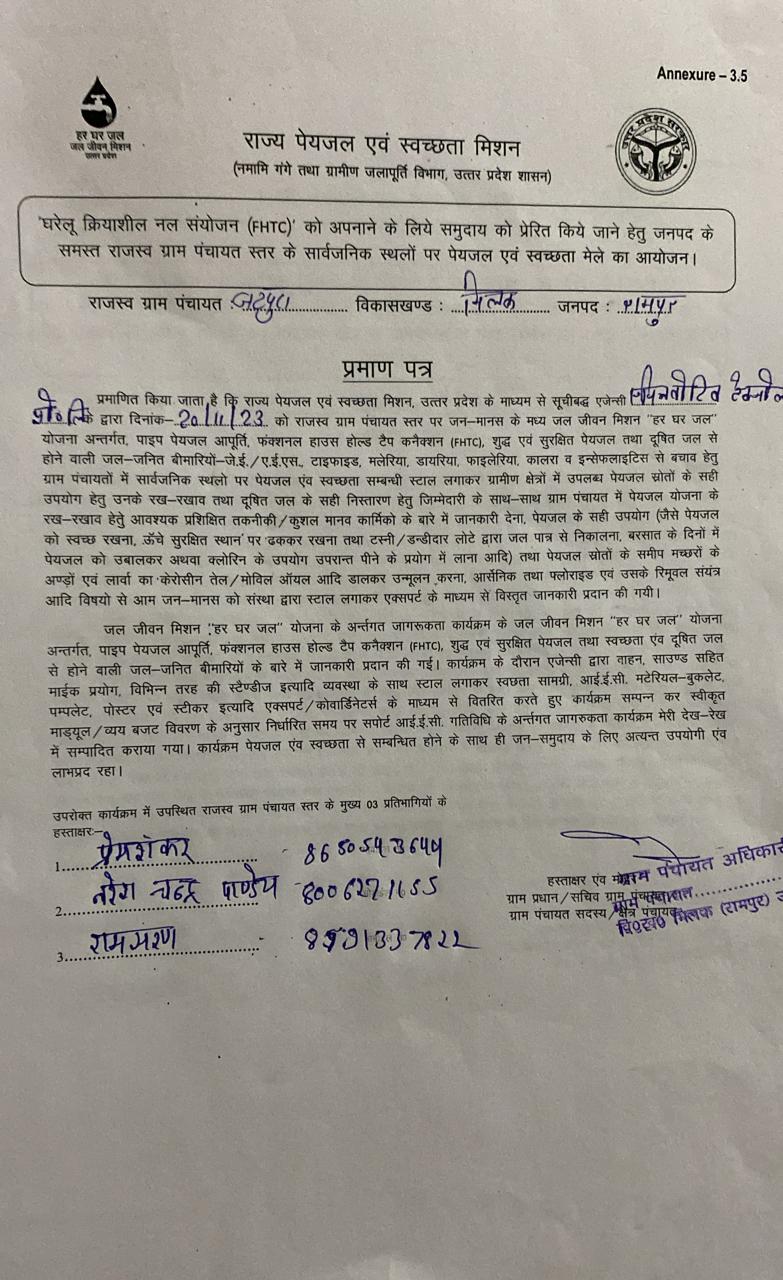 Annexure – 3.5
हर घर जल
जल जीवन मिशन
उत्तर प्रदेश
उत्तर प्रदेश सरकार
राज्य पेयजल एवं स्वच्छता मिशन
(नमामि गंगे तथा ग्रामीण जलापूर्ति विभाग, उत्तर प्रदेश शासन)
'घरेलू क्रियाशील नल संयोजन (FHTC)' को अपनाने के लिये समुदाय को प्रेरित किये जाने हेतु जनपद के
समस्त राजस्व ग्राम पंचायत स्तर के सार्वजनिक स्थलों पर पेयजल एवं स्वच्छता मेले का आयोजन।
राजस्व ग्राम पंचायत : जटपुरा विकासखण्ड : मिलक जनपद : रामपुर
प्रमाण पत्र
प्रमाणित किया जाता है कि राज्य पेयजल एवं स्वच्छता मिशन, उत्तर प्रदेश के माध्यम से सूचीबद्ध एजेन्सी
प्रा० लि० के द्वारा दिनांक- 20/11/23 को राजस्व ग्राम पंचायत स्तर पर जन–मानस के मध्य जल जीवन मिशन "हर घर जल"
योजना अन्तर्गत, पाइप पेयजल आपूर्ति, फंक्शनल हाउस होल्ड टैप कनैक्शन (FHTC), शुद्ध एवं सुरक्षित पेयजल तथा दूषित जल से
होने वाली जल–जनित बीमारियों–जे.ई./ए.ई.एस., टाइफाइड, मलेरिया, डायरिया, फाइलेरिया, कालरा व इन्सेफलाइटिस से बचाव हेतु
ग्राम पंचायतों में सार्वजनिक स्थलो पर पेयजल एंव स्वच्छता सम्बन्धी स्टाल लगाकर ग्रामीण क्षेत्रों में उपलब्ध पेयजल स्रोतों के सही
उपयोग हेतु उनके रख–रखाव तथा दूषित जल के सही निस्तारण हेतु जिम्मेदारी के साथ–साथ ग्राम पंचायत में पेयजल योजना के
रख–रखाव हेतु आवश्यक प्रशिक्षित तकनीकी/कुशल मानव कार्मिको के बारे में जानकारी देना, पेयजल के सही उपयोग (जैसे पेयजल
को स्वच्छ रखना, ऊँचे सुरक्षित स्थान पर ढककर रखना तथा टस्नी/डन्डीदार लोटे द्वारा जल पात्र से निकालना, बरसात के दिनों में
पेयजल को उबालकर अथवा क्लोरिन के उपयोग उपरान्त पीने के प्रयोग में लाना आदि) तथा पेयजल स्रोतों के समीप मच्छरों के
अण्ड़ों एवं लार्वा का केरोसीन तेल/मोविल ऑयल आदि डालकर उन्मूलन करना, आर्सेनिक तथा फ्लोराइड एवं उसके रिमूवल संयंत्र
आदि विषयो से आम जन–मानस को संस्था द्वारा स्टाल लगाकर एक्सपर्ट के माध्यम से विस्तृत जानकारी प्रदान की गयी।
जल जीवन मिशन "हर घर जल" योजना के अर्न्तगत जागरूकता कार्यक्रम के जल जीवन मिशन "हर घर जल" योजना
अन्तर्गत, पाइप पेयजल आपूर्ति, फंक्शनल हाउस होल्ड टैप कनैक्शन (FHTC), शुद्ध एवं सुरक्षित पेयजल तथा स्वच्छता एंव दूषित जल
से होने वाली जल–जनित बीमारियों के बारे में जानकारी प्रदान की गई। कार्यक्रम के दौरान एजेन्सी द्वारा वाहन, साउण्ड सहित
माईक प्रयोग, विभिन्न तरह की स्टैण्डीज इत्यादि व्यवस्था के साथ स्टाल लगाकर स्वछता सामग्री, आई.ई.सी. मटेरियल–बुकलेट,
पम्पलेट, पोस्टर एवं स्टीकर इत्यादि एक्सपर्ट/कोवार्डिनेटर्स के माध्यम से वितरित करते हुए कार्यक्रम सम्पन्न कर स्वीकृत
माड्यूल/व्यय बजट विवरण के अनुसार निर्धारित समय पर सपोर्ट आई.ई.सी. गतिविधि के अर्न्तगत जागरुकता कार्यक्रम मेरी देख–रेख
में सम्पादित कराया गया। कार्यक्रम पेयजल एंव स्वच्छता से सम्बन्धित होने के साथ ही जन–समुदाय के लिए अत्यन्त उपयोगी एंव
लाभप्रद रहा।
उपरोक्त कार्यक्रम में उपस्थित राजस्व ग्राम पंचायत स्तर के मुख्य 03 प्रतिभागियों के
हस्ताक्षरः–
1. प्रेमशंकर - 8650543644
2. नरेश चन्द्र पाण्डेय - 8006271655
3. रामसरण -
हस्ताक्षर एंव मोहर
ग्राम प्रधान/सचिव ग्राम पंचायत
ग्राम पंचायत सदस्य/क्षेत्र पंचायत
ग्राम पंचायत अधिकारी
ग्राम पंचायत
वि०ख० मिलक (रामपुर)